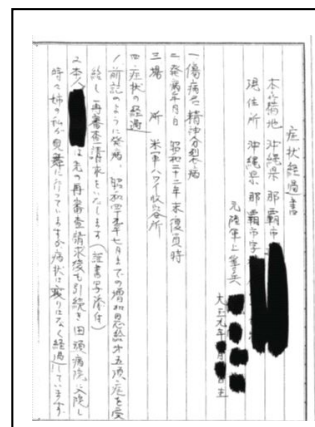 症状経過書
本籍地 沖縄県那覇市
現住所 沖縄県那覇市字
元陸軍上等兵
大正九年 月 日生
一 傷病名 精神分裂病
二 発病年月日 昭和二十一年末復員時
三 場所 米軍ハワイ収容所
四 症状の経過
1 前記のように発病、昭和四十九年七月までの増加恩給第五項症を受
給し再審査請求をいたします(証書写添付)
2 本人 は先の再審査請求後も引続き田頭病院に入院し
時々姉の私が見舞に行っていますが病状は変りはなく経過しています